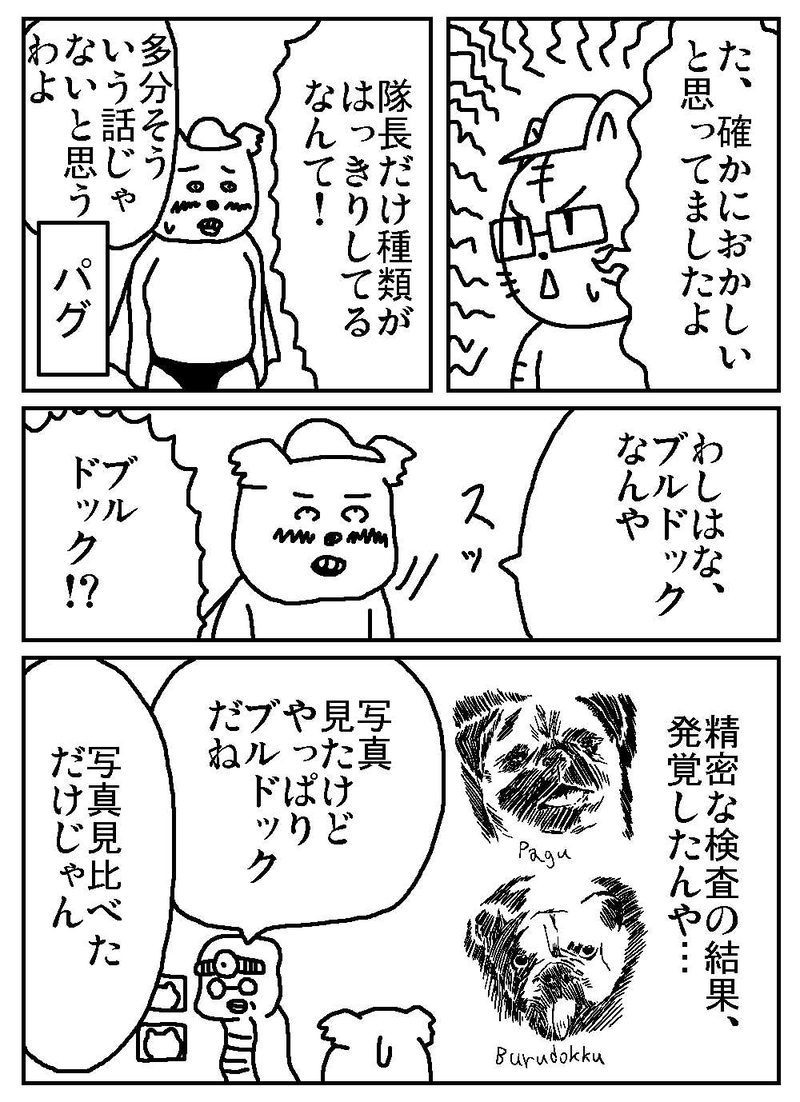 た、確かにおかしい
と思ってましたよ
隊長だけ種類が
はっきりしてる
なんて！
多分そう
いう話じゃ
ないと思う
わよ
パグ
わしはな、
ブルドック
なんや
スッ
ブル
ドック!?
精密な検査の結果、
発覚したんや…
Pagu
Burudokku
写真
見たけど
やっぱり
ブルドック
だね
写真見比べた
だけじゃん